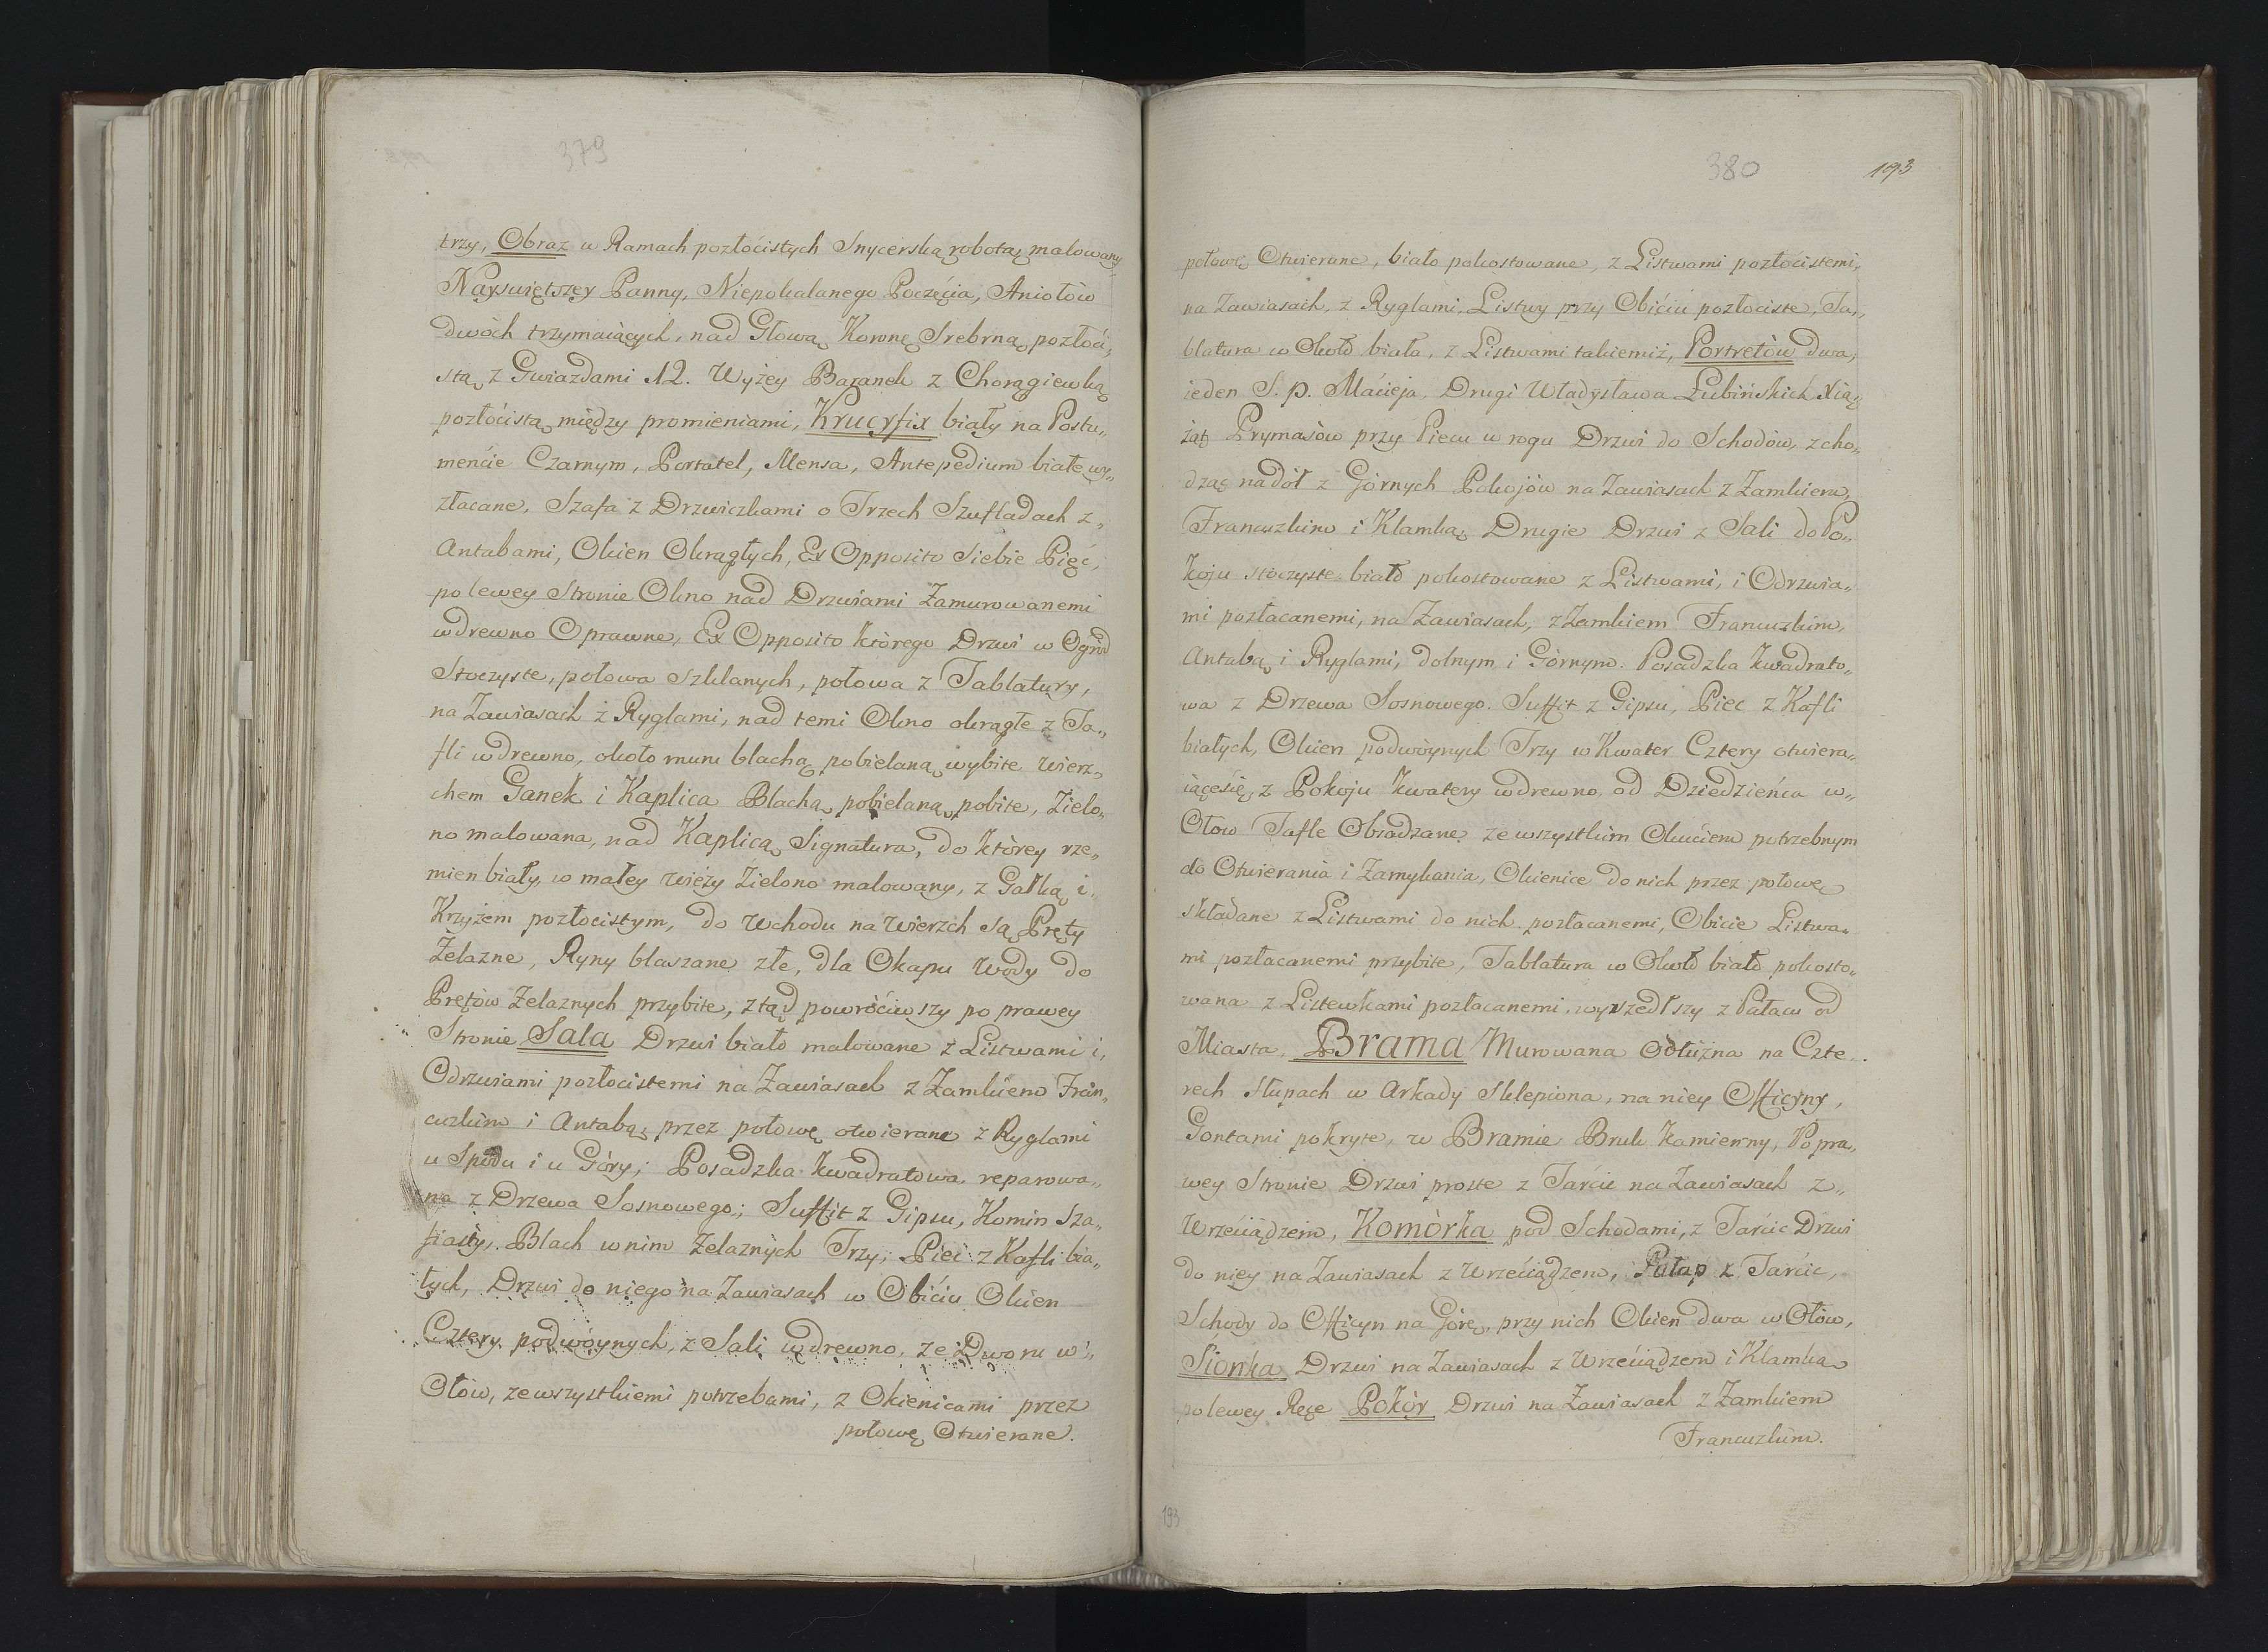 379
trzy, Obraz w Ramach pozłócistych Snycerską robotą malowany
Nayswiętszey Panny, Niepokalanego Poczęcia, Aniołów
dwóch trzymaiących, nad Głową Koronę Srebrną pozłóci„
stą z Gwiazdami 12. Wyżey Baranek z Chorągiewką
pozłócistą między promieniami, Krucyfix biały na Postu„
mencie Czarnym, Portatel, Mensa, Antepedium białe wy„
złacane, Szafa z Drzwiczkami o Trzech Szufladach z„
Antabami, Okien Okrągłych, Ex Opposito Siebie Pięć,
po lewey Stronie Okno nad Drzwiami Zamurowanemi
w drewno Oprawne, Ex Opposito którego Drzwi w Ogród
Stoczyste, połowa Szklanych, połowa z Tablatury,
na Zawiasach z Ryglami, nad temi Okno okrągłe z Ta„
fli w drewno, około muru blachą pobielaną wybite wierz„
chem Ganek i Kaplica Blachą pobielaną pobite, Zielo„
no malowana, nad Kaplicą Signatura, do którey rze„
mien biały, w małey wieży Zielono malowany, z Gałką i
Krzyżem pozłocistym, do Wchodu na Wierzch są Pręty
Żelazne, Ryny blaszane złe, dla Okapu Wody do
Prętów Żelaznych przybite, ztąd powróciwszy po prawey
Stronie Sala Drzwi biało malowane z Listwami i,
Odrzwiami pozłocistemi na Zawiasach z Zamkiem Fran„
cuzkim i Antabą, przez połowę otwierane z Ryglami
u Spodu i u Góry; Posadzka kwadratowa reparowa„
na z Drzewa Sosnowego; Suffit z Gipsu, Komin Sza„
fiasty, Blach w nim Żelaznych Trzy, Piec z Kafli bia„
łych, Drzwi do niego na Zawiasach w Obiciu Okien
Cztery podwóynych, z Sali w drewno, ze Dworu w„
Ołów, ze wszystkiemi potrzebami, z Okienicami przez
połowę Otwierane.
380
193
połowę Otwierane, biało pokostowane, z Listwami pozłocistemi,
na Zawiasach, z Ryglami, Listwy przy Obiciu pozłociste, Ta„
blatura w Około biała, z Listwami takiemiż, Portretów dwa,
ieden S. p. Macieja, Drugi Władysława Łubińskich Xią„
żąt Prymasów przy Piecu w rogu Drzwi do Schodów, zcho„
dząc na dół z Górnych Pokojów na Zawiasach z Zamkiem,
Francuzkim i Klamką, Drugie Drzwi z Sali do Po„
koju stoczyste biało pokostowane z Listwami, i Odrzwia„
mi pozłacanemi, na Zawiasach, z Zamkiem Francuzkim,
Antabą i Ryglami, dolnym i Górnym. Posadzka kwadrato„
wa z Drzewa Sosnowego. Suffit z Gipsu, Piec z Kafli
białych, Okien podwóynych Trzy w Kwater Cztery otwiera„
iącesię, z Pokoju kwatery w drewno, od Dziedzieńca w„
Ołow Tafle Obsadzane ze wszystkim Okuciem potrzebnym
do Otwierania i Zamykania, Okienice do nich przez połowę
składane z Listwami do nich pozłacanemi, Obicie Listwa„
mi pozłacanemi przybite, Tablatura w Około biało pokosto„
wana z Listewkami pozłacanemi, wyszedłszy z Pałacu od
Miasta, Brama Murowana Odłużna na Czte„
rech Słupach w Arkady Sklepiona, na niey Officyny,
Gontami pokryte, w Bramie Bruk Kamienny, Po pra„
wey Stronie Drzwi proste z Tarcic na Zawiasach z„
Wrzeciądzem, Komórka pod Schodami, z Tarcic Drzwi
do niey na Zawiasach z Wrzeciądzem, Pułap z Tarcic,
Schody do Officyn na Górę, przy nich Okien dwa w Ołów,
Sionka Drzwi na Zawiasach z Wrzeciądzem i Klamką
po lewey Ręce Pokóy Drzwi na Zawiasach z Zamkiem
Francuzkim.
193